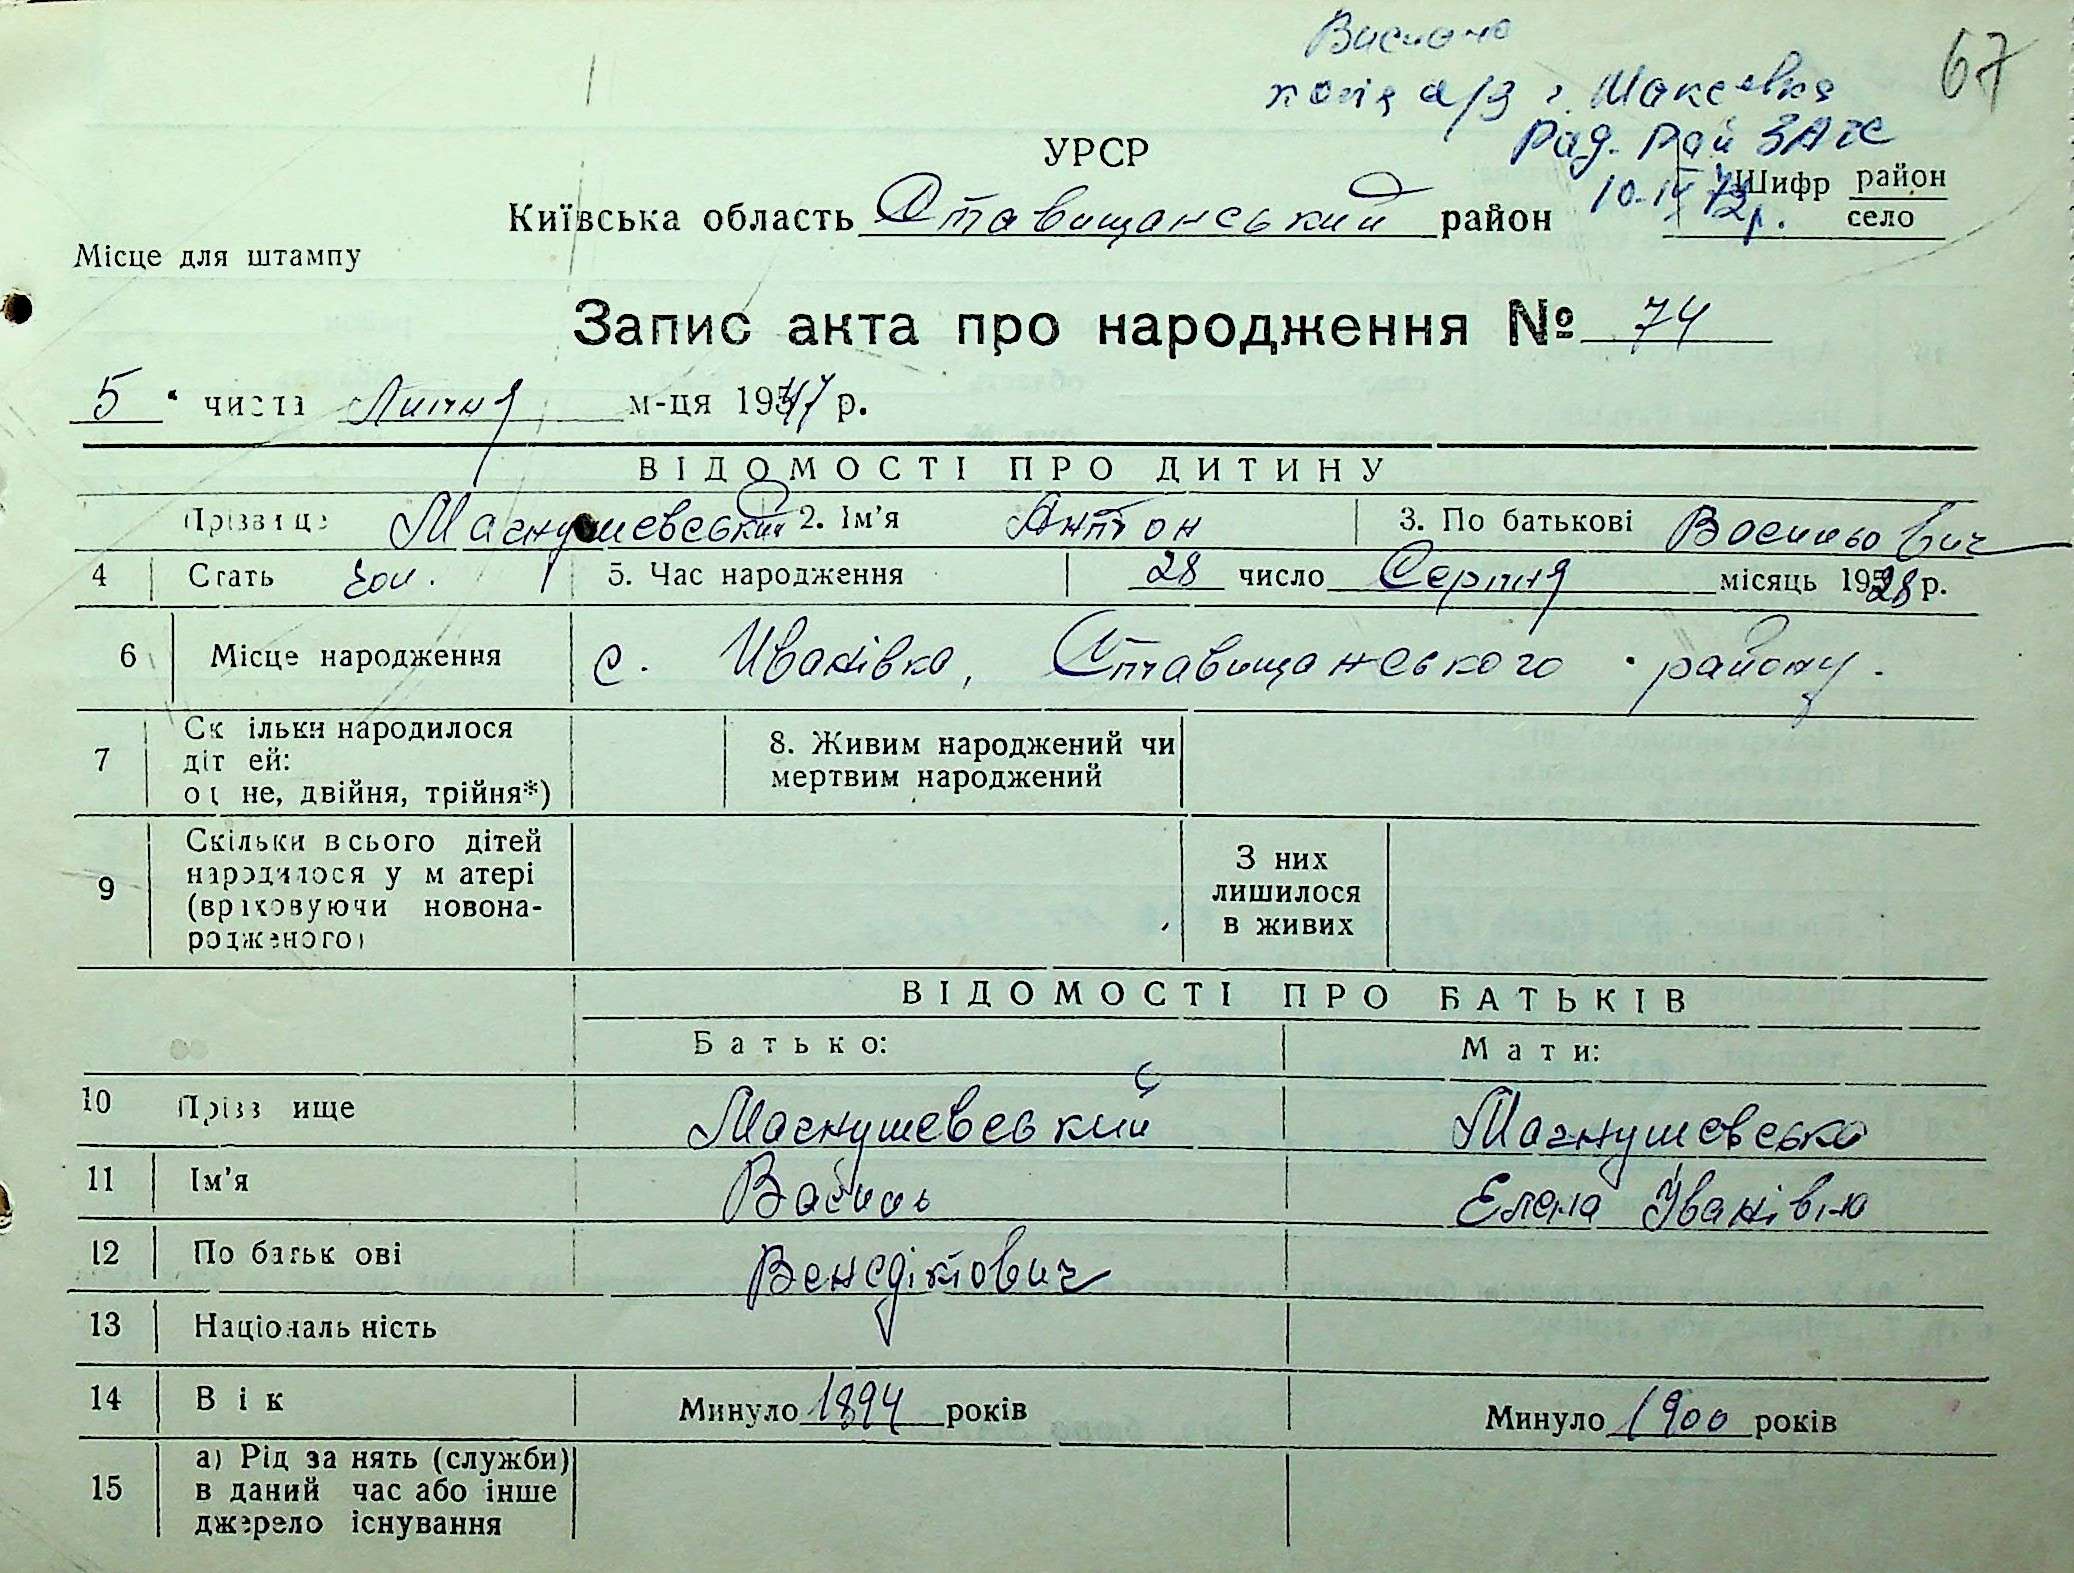 67
копія а/з г. Макеевка
Рад. Рай ЗАГС
УРСР
Шифр район
село
10-IV 72р.
Київська область Ставищанський район
Місце для штампу
Запис акта про народження № 74
5 " числа Липня м-ця 1947 р.
ВІДОМОСТІ ПРО ДИТИНУ
Прізвище Магнушевський 2. Ім'я Антон 3. По батькові Васильович
4 Стать чол. 5. Час народження 28 число Серпня місяць 1928 р.
6 Місце народження с. Иванівка, Ставищанського району.
7 Скільки народилося
дітей:
одне, двійня, трійня*)
8. Живим народжений чи
мертвим народжений
9 Скільки всього дітей
народилося у матері
(враховуючи новона-
родженого)
З них
лишилося
в живих
ВІДОМОСТІ ПРО БАТЬКІВ
Батько: Мати:
10 Прізвище Магнушевський Магнушевська
11 Ім'я Василь Елена Іванівна
12 По батькові Венедіктович
13 Національність
14 Вік Минуло 1894 років Минуло 1900 років
15 а) Рід занять (служби)
в даний час або інше
джерело існування